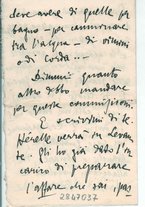 deve avere di quelle per
bagno – per camminare
tra l'acqua – di vimini
o di corda...
Dimmi quanto
altro debbo mandare
per queste commissioni.
E scrivimi di te.
Hérelle verrà in
Gli ho già dato l'in-
carico di preparare
l'affare che sai, per
2847037